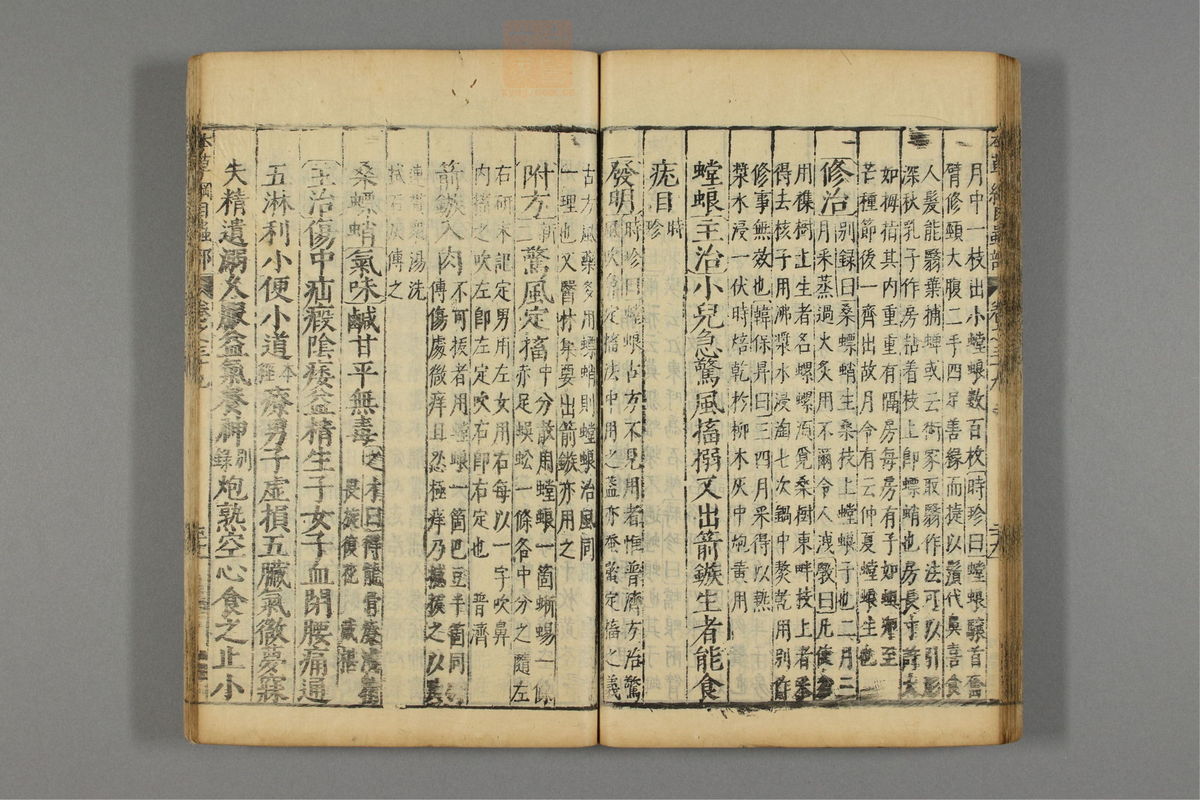 月中一枝出小螳蜋數百枚時珍曰螳蜋驤首奮
臂修頸大腹二手四足善緣而捷以鬚代鼻喜食
人髮能翳葉捕蟬或云術家取翳作法可以引形
深秋乳子作房粘着枝上卽螵蛸也房長寸許大
如拇指其內重重有隔房每房有子如蛆卵至
芒種節後一齊出故月令有云仲夏螳蜋生也
修治別録曰桑螵蛸生桑枝上螳蜋子也二月三
月采蒸過火炙用不爾令人洩斅曰凡使勿
用襍樹上生者名螺螺湏覓桑樹東畔枝上者采
得去核子用沸漿水浸淘七次鍋中熬乾用別作
修事無效也韓保昇曰三四月采得以熱
漿水浸一伏時焙乾於柳木灰中炮黄用
螳蜋主治小兒急驚風搐搦又出箭鏃生者能食
疣目時珍
發明時珍曰螳蜋古方不見用者惟普濟方治驚
風吹鼻定搐法中用之葢亦蚕蠍定搐之義
古方風藥多用螵蛸則螳蜋治風同
一理也又醫林集要出箭鏃亦用之
附方二驚風定搐中分散用螳蜋一箇蜥蜴一條
赤足蜈蚣一條各中分之隨左
右研末記定男用左女用右每以一字吹鼻
內搐之吹左卽左定吹右卽右定也 普濟
箭鏃入肉不可拔者用螳蜋一箇巴豆半箇同研
傅傷處微痒且忍極痒乃撼拔之以黄
連貫衆湯洗
拭石灰傅之
桑螵蛸氣味鹹甘平無毒之才曰得龍骨療洩精
畏旋復花戴椹
主治傷中疝瘕陰痿益精生子女子血閉腰痛通
五淋利小便小道本經療男子虛損五臟氣微夢寐
失精遺溺久服益氣養神別錄炮熟空心食之止小